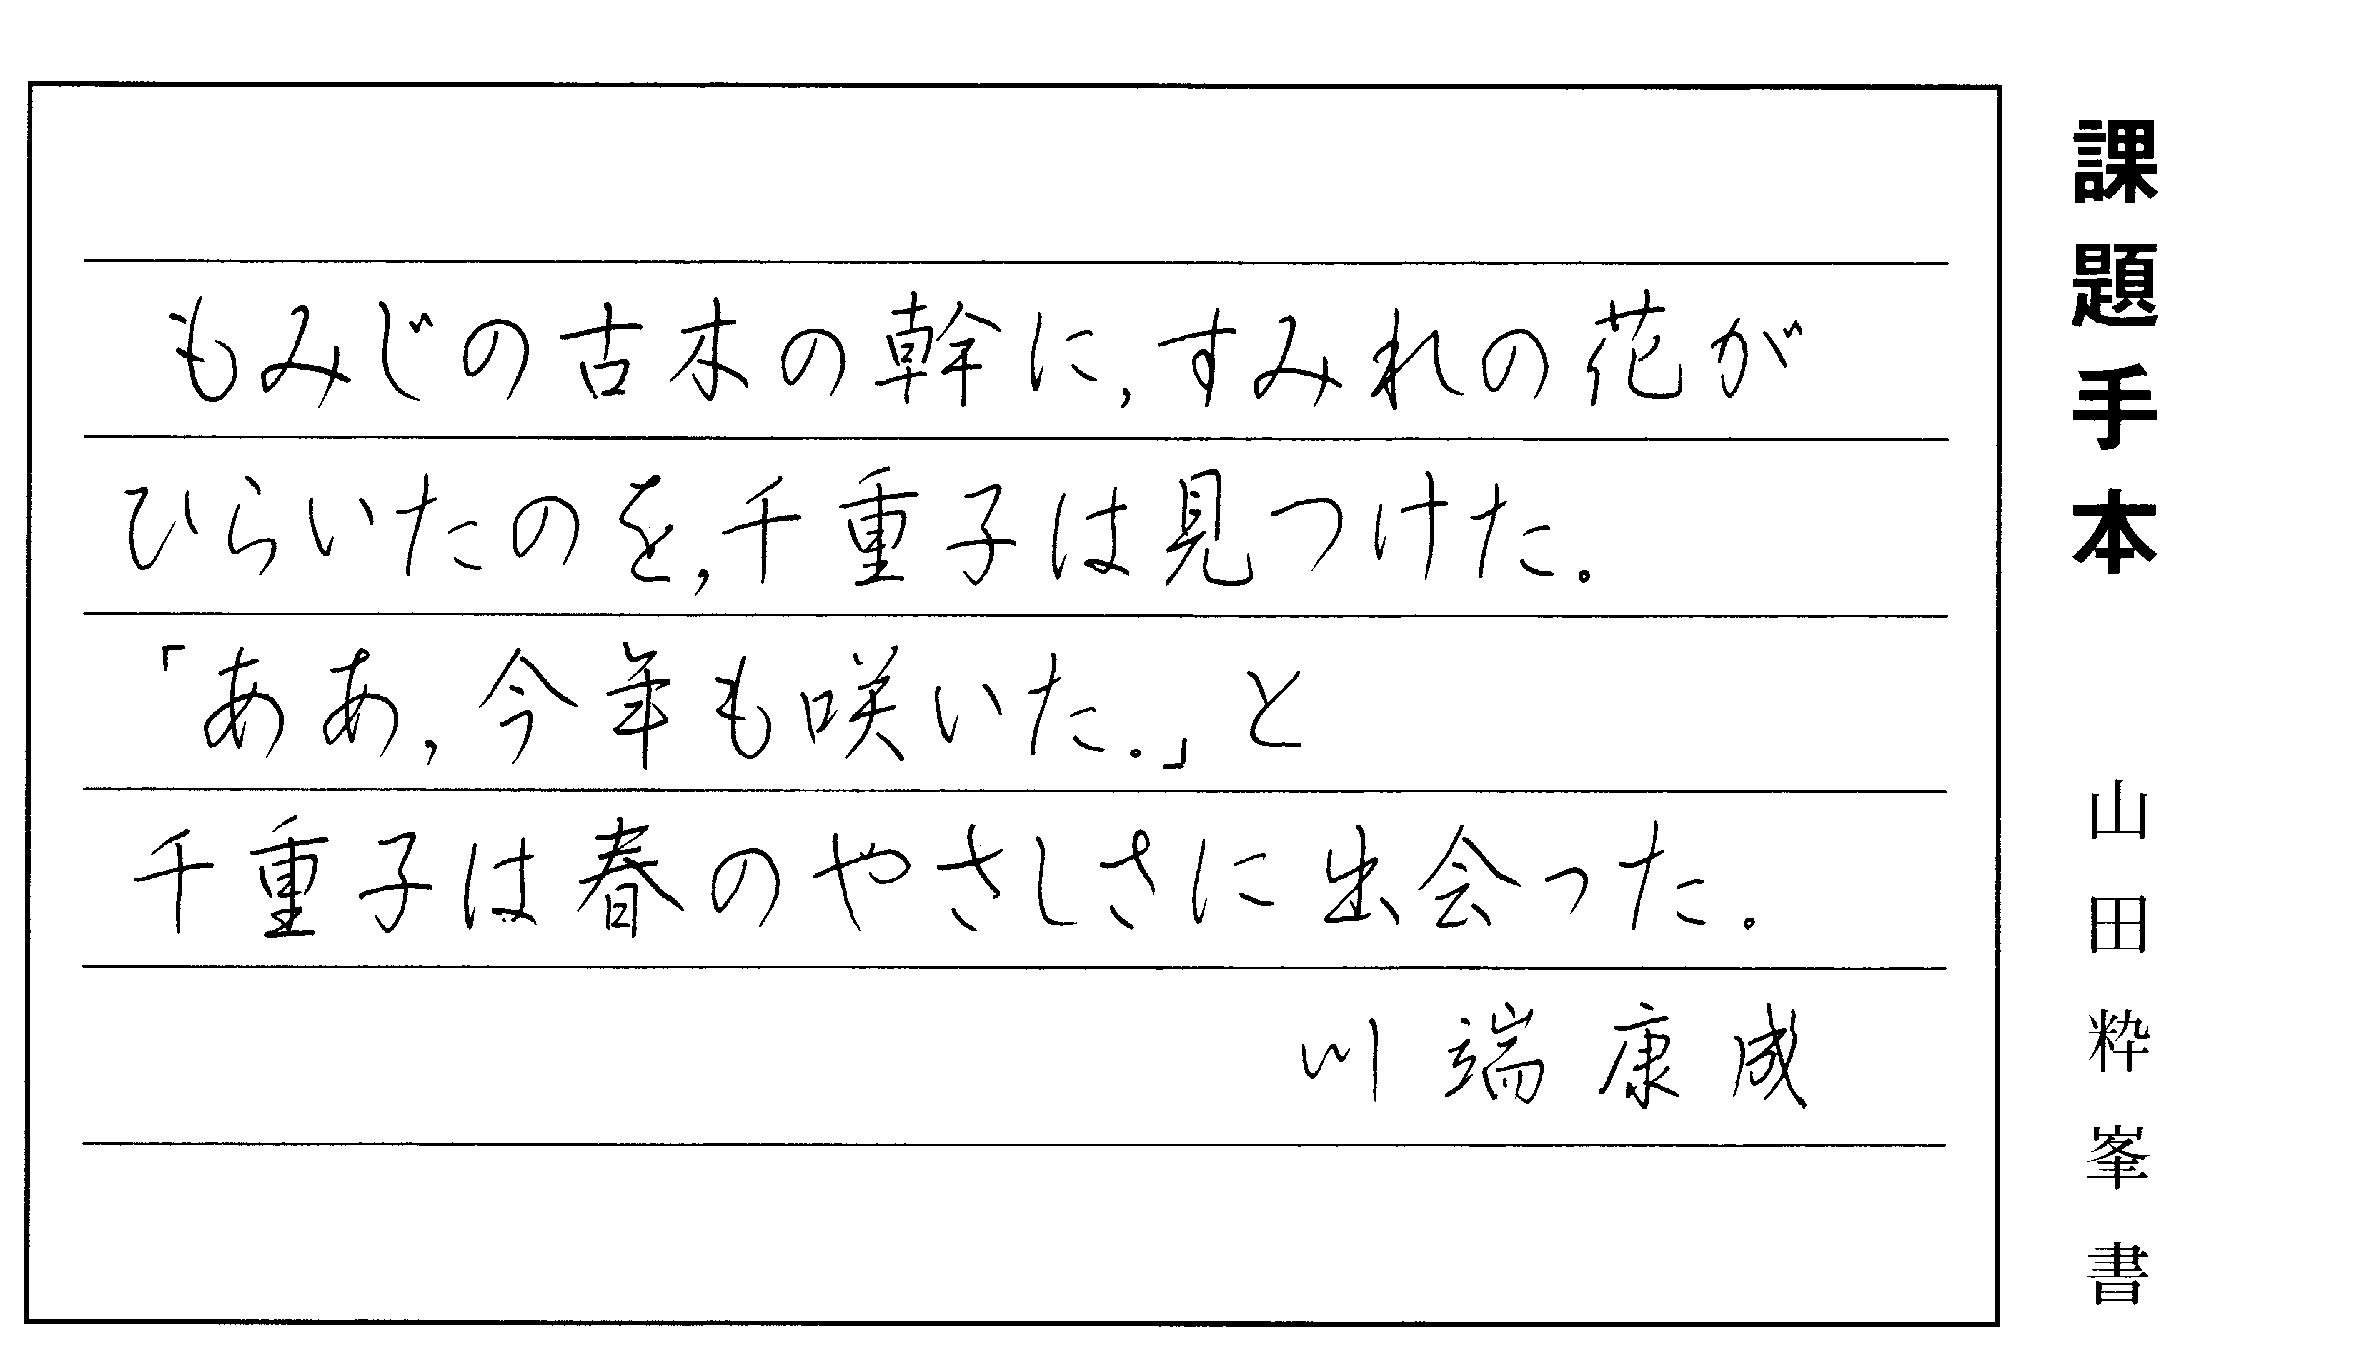 もみじの古木の幹に,すみれの花が
ひらいたのを,千重子は見つけた。
「ああ,今年も咲いた。」と
千重子は春のやさしさに出会った。
川端康成
課題手本 山田粋峯書